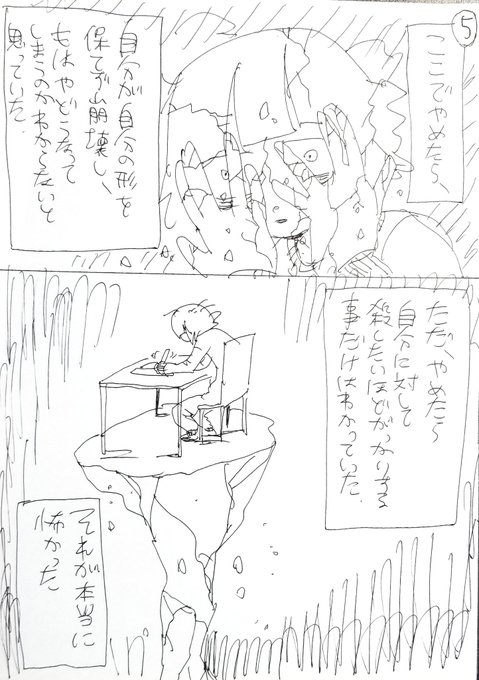 ⑤
ここでやめたら、
自分が自分の形を
保てず崩壊し、
もはやどうなって
しまうのかわからないと
思っていた.
ただ、やめたら
自分に対して
殺したいほどがっかりする
事だけはわかっていた.
それが本当に
怖かった